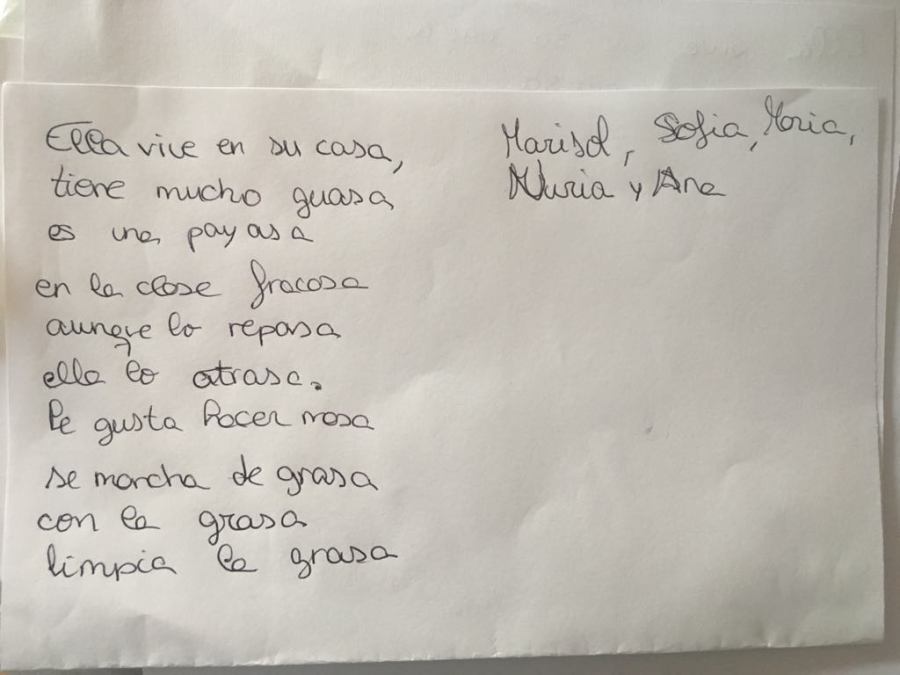 Ella vive en su casa,
tiene mucho guasa,
es una payasa
en la clase fracasa
aunqe lo repasa
ella lo atrasa.
le gusta hacer masa
se marcha de grasa
con la grasa
limpia la grasa
Marisol, Sofia, Maria,
Nuria y Ana